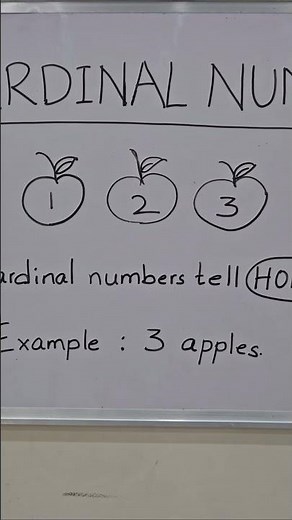 RDINAL NUM
1 2 3
ardinal numbers tell HO
Example : 3 apples.